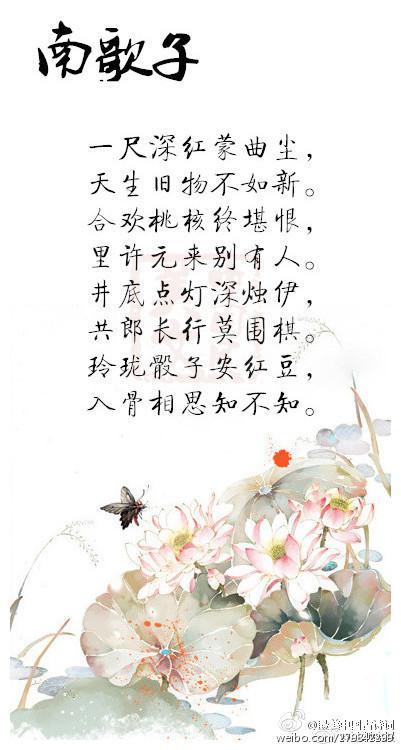 南歌子
一尺深红蒙曲尘，
天生旧物不如新。
合欢桃核终堪恨，
里许元来别有人。
井底点灯深烛伊，
共郎长行莫围棋。
玲珑骰子安红豆，
入骨相思知不知。